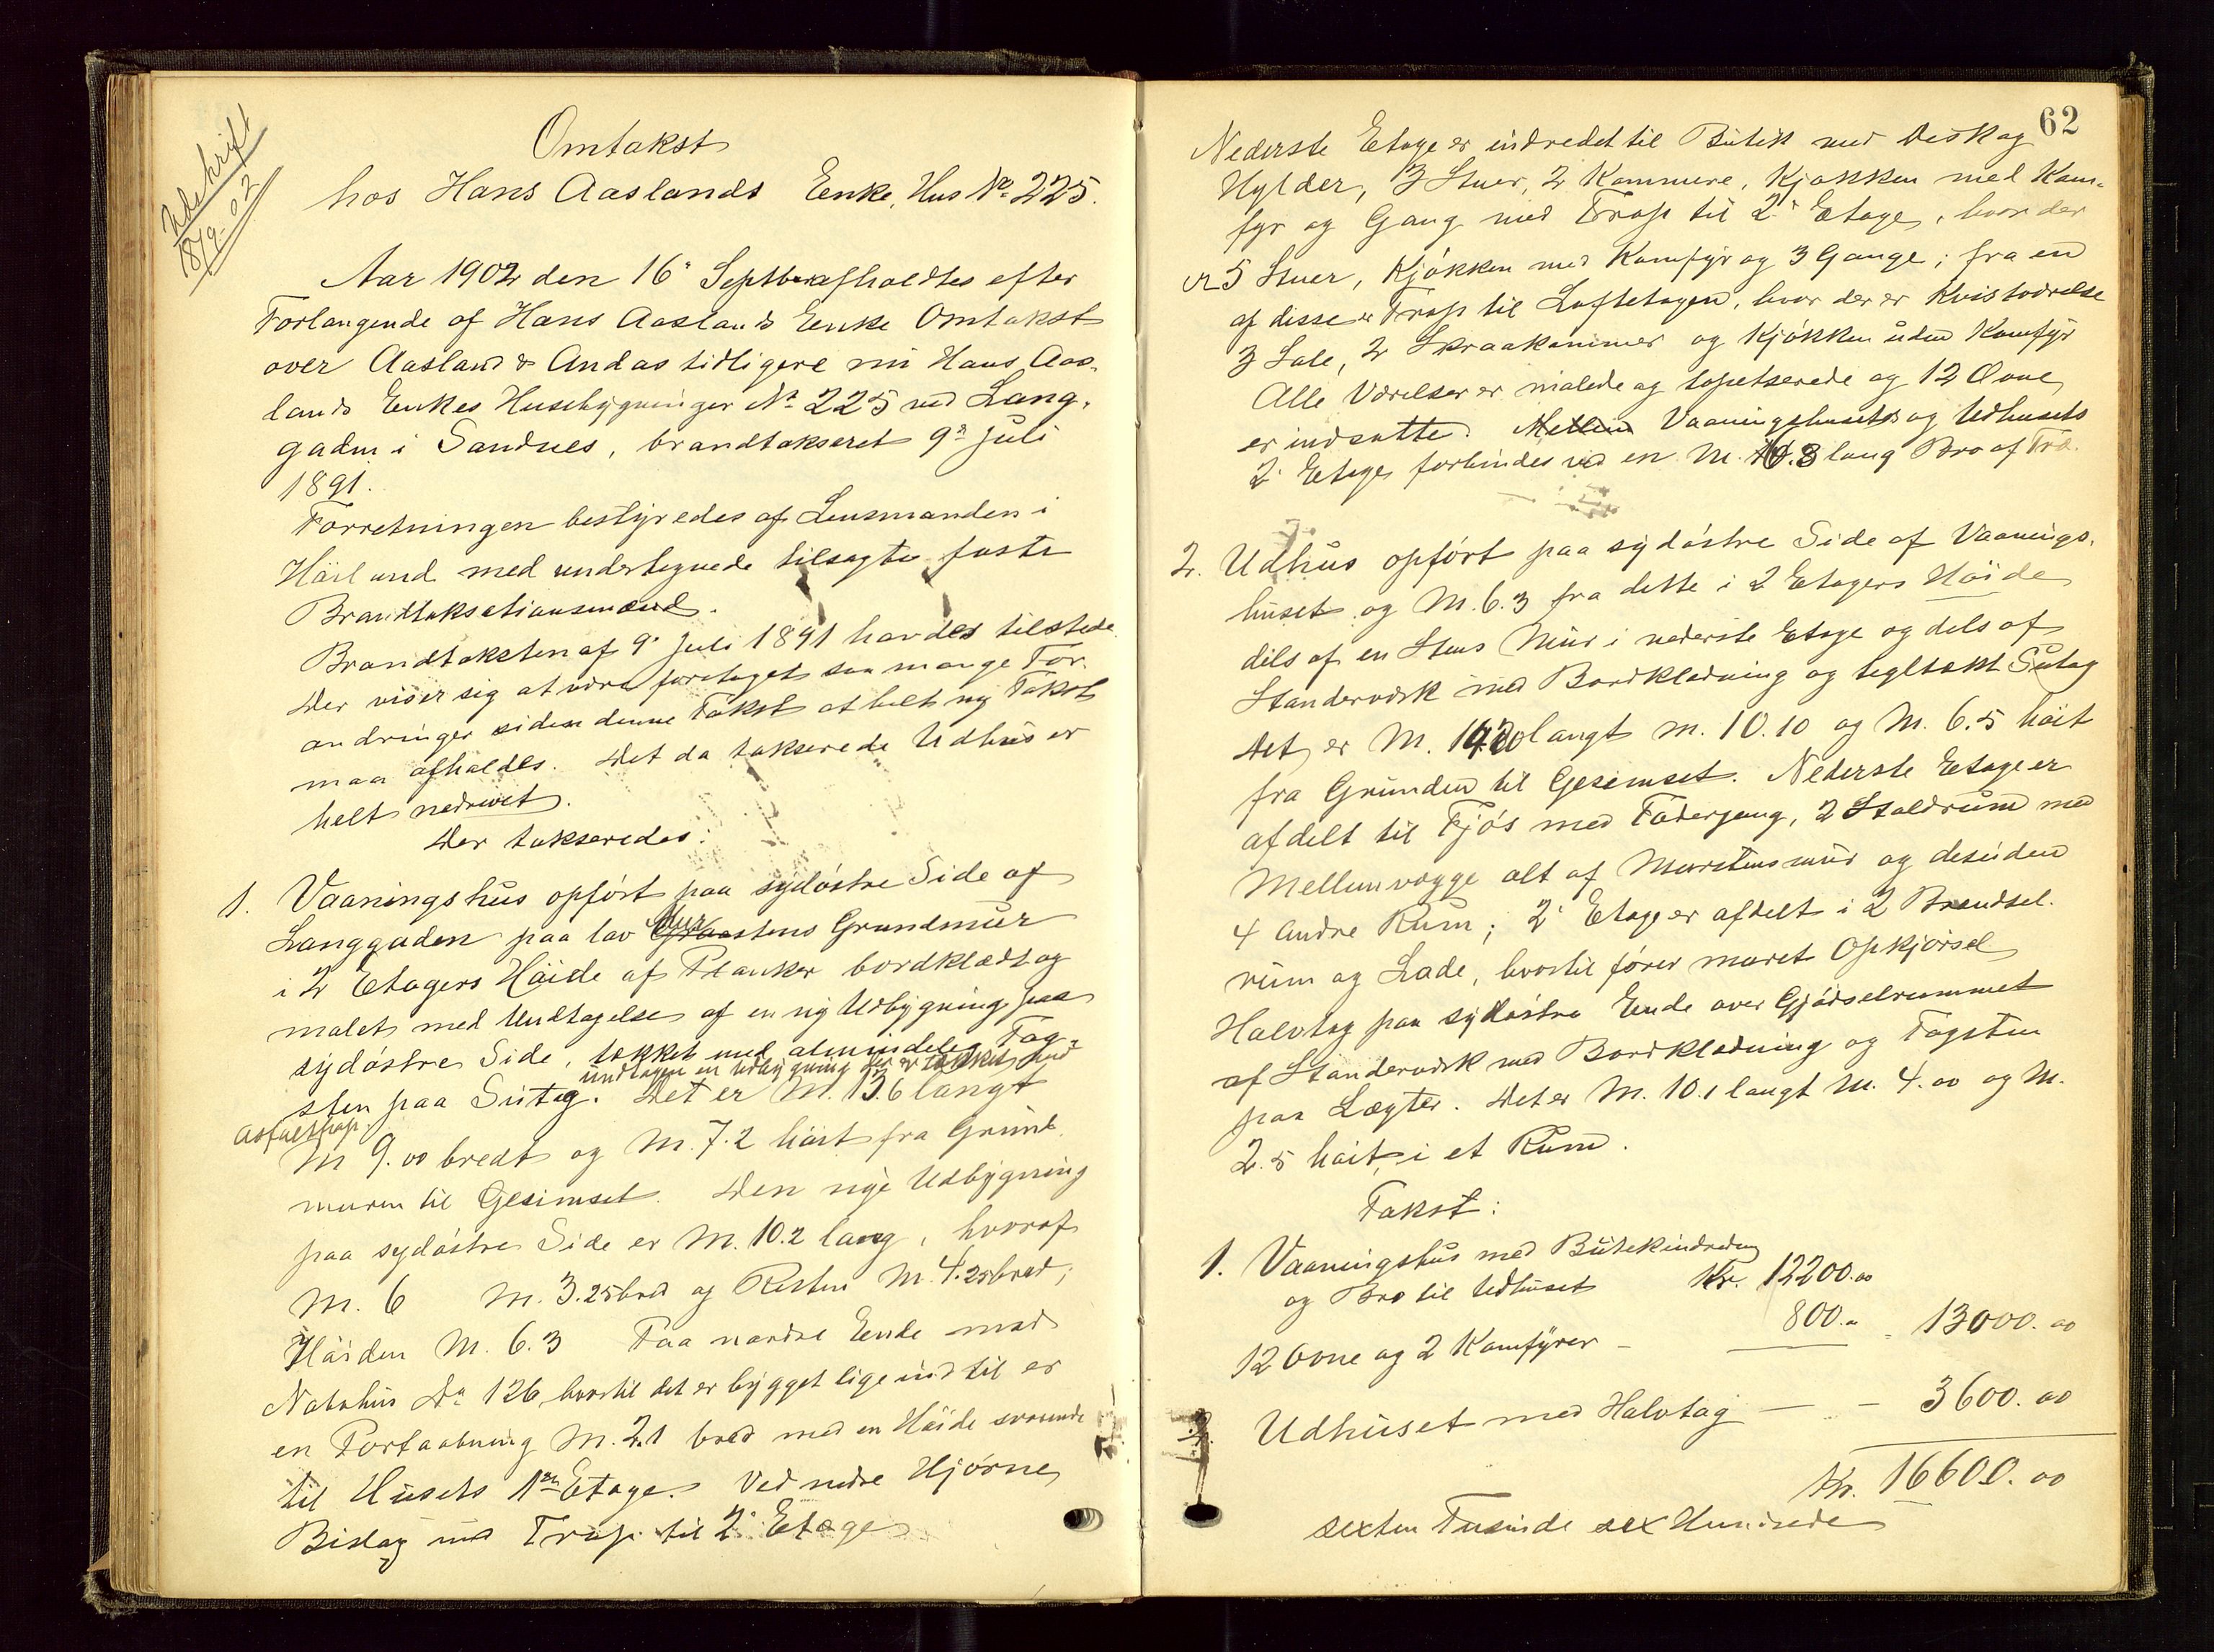 Udskrift
18/9.02
Omtakst
hos Hans Aaslands Enke, Hus No 225.
Aar 1902 den 16' Septbr afholdtes efter
Forlangende af Hans Aaslands Enke Omtakst
over Aasland & Andas tidligere nu Hans Aas-
lands Enkes Husebygninger No 225 ved Lang-
gaden i Sandnes, brandtakseret 9de Juli
1891.
Forretningen bestyredes af Lensmanden i
Höiland med undertegnede tilsagte faste
Brandtakstionsmænd.
Brandtaksten af 9' Juli 1891 havdes tilstede
Der viser sig at være foretaget saa mange For-
andringer siden denne Takst at helt ny Takst
maa afholdes. Det da takserede Udhus er
helt nedrevet.
Der takseredes:
1. Vaaningshus opfört paa sydöstre Side af
Langgaden paa lav Mur Graastens Grundmur
i 2 Etagers Höide af Planker bordklædt og
malet med Undtagelse af en ny Udbygning paa
sydöstre Side, tækket med almindelig Tag-
undtagen en udbygning der er tækket med
sten paa Sutag. Det er M. 13.6 langt
asfaltpap.
M 9.00 bredt og M. 7.2 höit fra Grund-
muren til Gesimset. Den nye Udbygning
paa sydöstre Side er M. 10.2 lang, hvoraf
M. 6 M. 3.25 bred og Resten M. 4.25 bred;
Höiden M. 6.3 Paa nordre Ende mod
Nabohus No 126, hvortil det er bygget lige ind til er
en Portaabning M. 2.1 bred med en Höide svarende
til Husets 1ste Etage. Ved nedre Hjörne
Bislag med Trap til 2' Etage
62
Nederste Etage er indredet til Butik med Desk og
Hylder, 3 Stuer, 2 Kammere, Kjökken med Kom-
fyr og Gang med Trap til 2' Etage, hvor der
er 5 Stuer, Kjökken med Komfyr og 3 Gange; fra en
af disse er Trap til Loftetagen, hvor der er Kvistværelse
3 Sale, 2 Skraakammer og Kjökken uden Komfyr
Alle Værelser er malede og tapetserede og 12 Ovne
er indsatte. Mellem Vaaningshusets og Udhusets
2' Etage forbindes ved en M. 6.3 lang Bro af Træ.
2. Udhus opfört paa sydöstre Side af Vaanings-
huset og M. 6.3 fra dette i 2 Etagers Höide
dels af en Stens Mur i nederste Etage og dels af
Standerværk med Bordklædning og tegltækt Sutag
Det er M. langt M. 10.10 og M. 6.5 höit
fra Grunden til Gesimset. Nederste Etage er
afdelt til Fjös med Fodergang, 2 Staldrum med
Mellemvægge alt af Murstensmur og desuden
4 andre Rum; 2' Etage er afdelt i 2 Brændsel-
rum og Lade, hvortil förer muret Opkjörsel
Halvtag paa sydöstre Ende over Gjödselrummet
af Standerværk med Bordklædning og Tagsten
paa Lægter. Det er M. 10.1 langt M. 4.00 og M.
2.5 höit, i et Rum.
Takst:
1. Vaaningshus med Butikindredning
og Bro til Udhuset Kr. 12200.00
12 Ovne og 2 Komfyrer - 800.00 - 13000.00
2. Udhuset med Halvtag — - - 3600.00
Kr. 16600.00
sexten Tusinde sex Hundrede